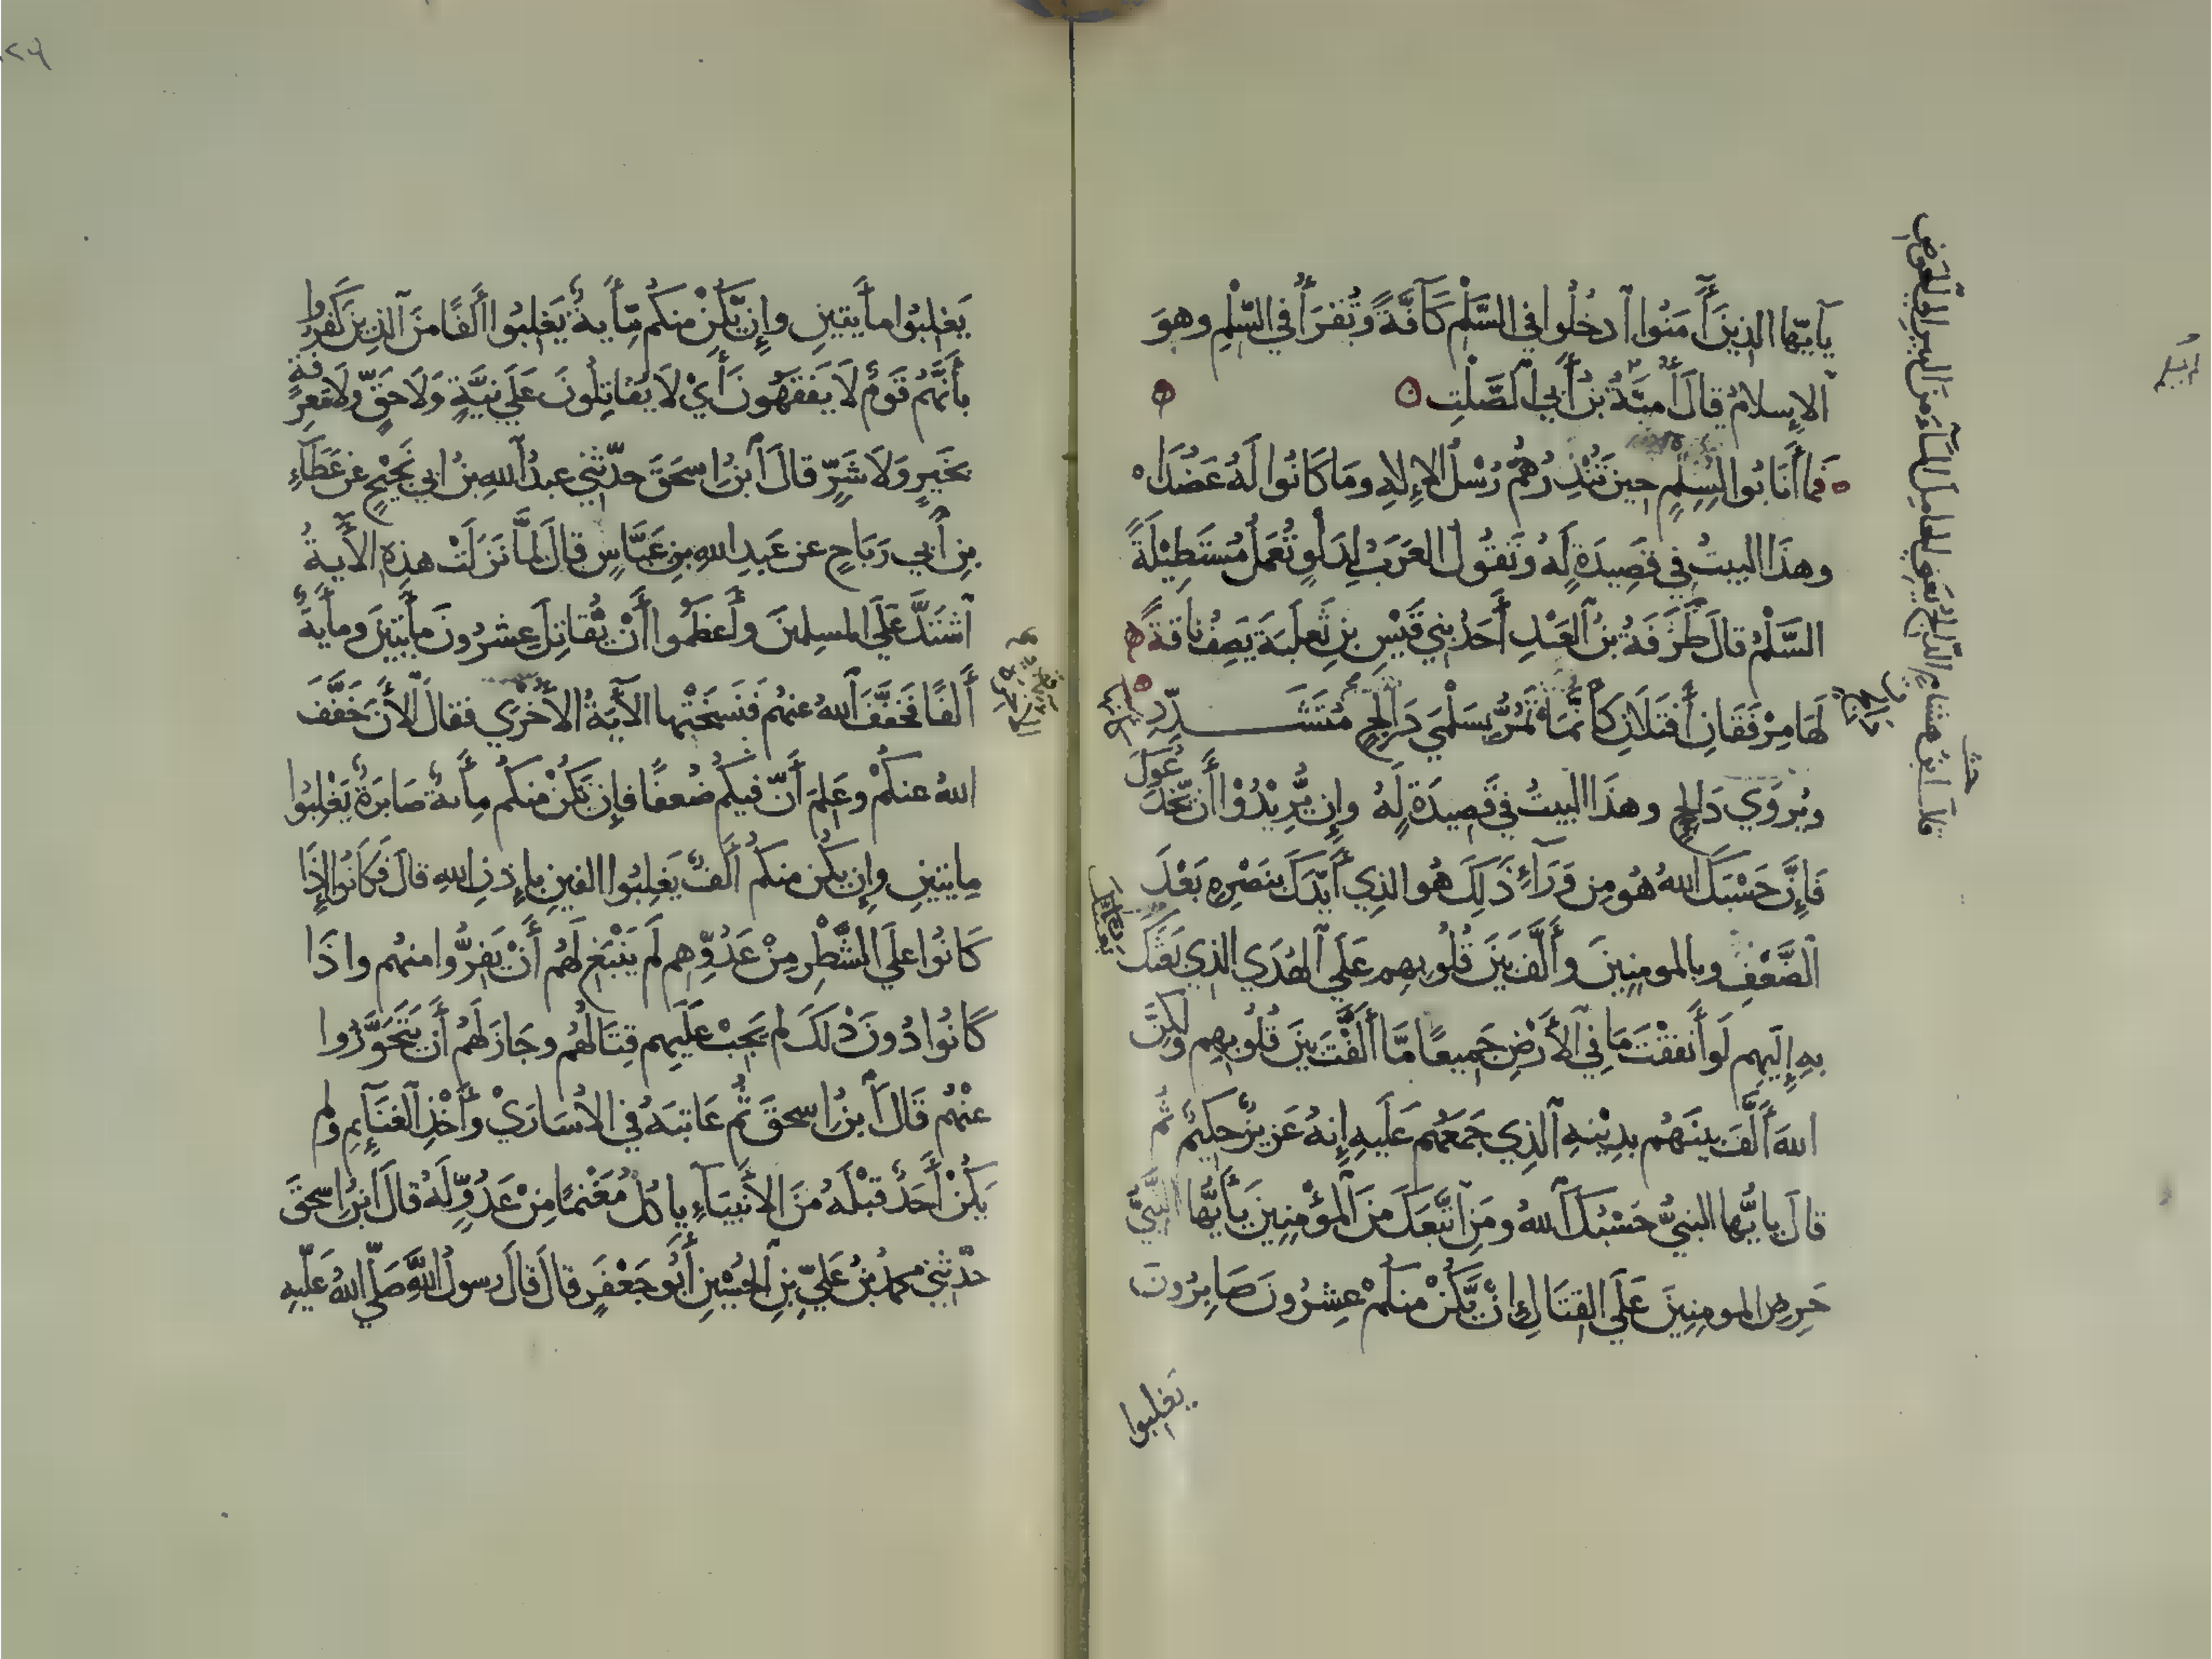 يَآيّها الذِينَ أٓمَنُوا ٱدخُلُوا في السَّلْمِ كَآفَّةً وتُقرَأُ في السِّلْمِ وهوَ
ٱلإِسلامُ قالَ أُمَيَّةُ بنُ أَبِي ٱلصَّلْتِ
فما أَنَابُوا لِسِلْمٍ حِينَ تُنْذِرُهُمْ رُسْلُ الإِلهِ ومَا كَانُوا لَهُ عَضُدَا
وهذَا البيتُ في قَصِيدَةٍ لَهُ وتَقُولُ العَرَبُ لِدَلْوٍ تُعمَلُ مُسْتَطِيْلَةً
السَّلْمُ قالَ طَرَفَةُ بنُ ٱلعَبْدِ أَحَدُ بَنِي قَيْسِ بنِ ثَعلَبَةَ يَصِفُ نَاقَةً
لَهَا مِرْفَقَانِ أَفتَلَانِ كَأَنَّمَا تَمُرُّ بِسَلْمَيْ دَالِجٍ مُتَشَدِّدِ
ويُروَي دَالِحٍ وهذَا البيتُ في قَصِيدَةٍ لَهُ وإِن يُّرِيْدُوْا أَن يَّخْدَعُوكَ
فَإِنَّ حَسْبَكَ اللهُ هُو مِن وَرَآءِ ذَلِكَ هُو الذِي أَيَّدَكَ بِنَصْرِهِ بَعْدَ
ٱلضَّعْفِ وبالمومِنِينَ وأَلَّفَ بَيْنَ قُلُوبِهِم عَلَي ٱلهُدَي الذِي بَعَثَكَ
بِهِ إِلَيهِم لَو أَنفَقْتَ مَا فِي ٱلأَرْضِ جَمِيعًا مَّا أَلَّفْتَ بَيْنَ قُلُوبِهِم ولَكِنَّ
اللهَ أَلَّفَ بينَهُم بدِيْنِهِ ٱلذِي جَمَعَهُم عَلَيهِ إِنهُ عَزِيزٌ حَكِيمٌ ثُم
قالَ يايُّها النبيُّ حَسْبُكَ ٱللهُ ومَنِ ٱتَّبَعَكَ مِنَ ٱلمُؤْمِنِينَ يَأَيُّهَا النَّبِيُّ
حَرِضِ المومِنِينَ عَلَي القِتَالِ إِنْ يَّكُنْ مِنكُمْ عِشرُونَ صَابِرُونَ
يَغلِبُوا
يَغلِبُوا مأيتَينِ وإِن يَّكُنْ مِنكُم مِّأَيةٌ يَغلِبُوا أَلفًا مِنَ ٱلذِينَ كَفَرُوا
بأَنَّهُم قَومٌ لَا يَفقَهُونَ أَيْ لَا يُقاتِلُونَ عَلَي نِيَّةٍ وَلَا حَقٍّ ولَا مَعرِفَةٍ
بخَيرٍ وَلَا شَرٍّ قالَ ٱبنُ إسحَقَ حدّثني عبدُ ٱللهِ بنُ ابي نَجِيْحٍ عن عَطَآءِ
بنِ أَبي رَبَاحٍ عن عَبدِ اللهِ بنِ عَبَّاسٍ قالَ لمَّا نَزَلَتْ هذِهِ الأَيةُ
ٱشتَدَّ عَلَي المسلِمِينَ وأَعظَمُوا أَنْ يُّقاتِلَ عِشرُونَ مأيتَينِ ومأيةٌ
أَلفًا فخَفَّفَ ٱللهُ عنهُم فنَسَخَتْها الآيَةُ الأُخْرَي فقالَ ٱلأنَ خَفَّفَ
اللهُ عنكُمْ وعَلِمَ أَنّ فيكُم ضُعفًا فإِن تَكُنْ مِنكُم مأيةٌ صَابِرَةٌ يَغْلِبُوا
مايتينِ وإِن يكُن منكُم أَلفٌ يَغلِبُوا الفينِ بإِذنِ اللهِ قالَ فَكَانُوا إِذَا
كَانُوا علَي الشَّطْرِ مِنْ عَدُوِّهِم لَم يَنْبَغِ لَهُم أَنْ يَفِرُّوا منهُم واذَا
كَانُوا دُونَ ذَلكَ لم يَجِبْ عَلَيهِم قِتَالُهُم وجَازَ لَهُم أَن يَتَحَوَّزُوا
عنْهُم قَالَ ٱبنُ اسحقَ ثُم عَاتبَهُ في الأُسَارَيْ وأَخْذِ ٱلغَنَآيِمِ ولم
يَكُنْ أَحَدٌ قبْلَهُ مِنَ الأَنبِيَآءِ ياكُلُ مَغْنمًا مِنْ عَدُوٍّ لَهُ قالَ ابنُ اسحقَ
حدّثني محمدُ بنُ عَليِّ بنِ ٱلحُسَيْنِ أَبُو جَعْفَرٍ قالَ قالَ رسولُ اللهِ صَلّي اللهُ علَيهِ